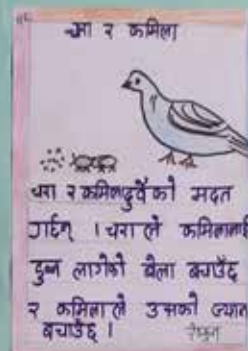 चरा र कमिला
चरा र कमिला दुवैको मदत
गर्दछन् । चराले कमिलालाई
डुब्न लागेको बेला बचाउँछ
र कमिलाले उसको ज्यान
बचाउँछ ।